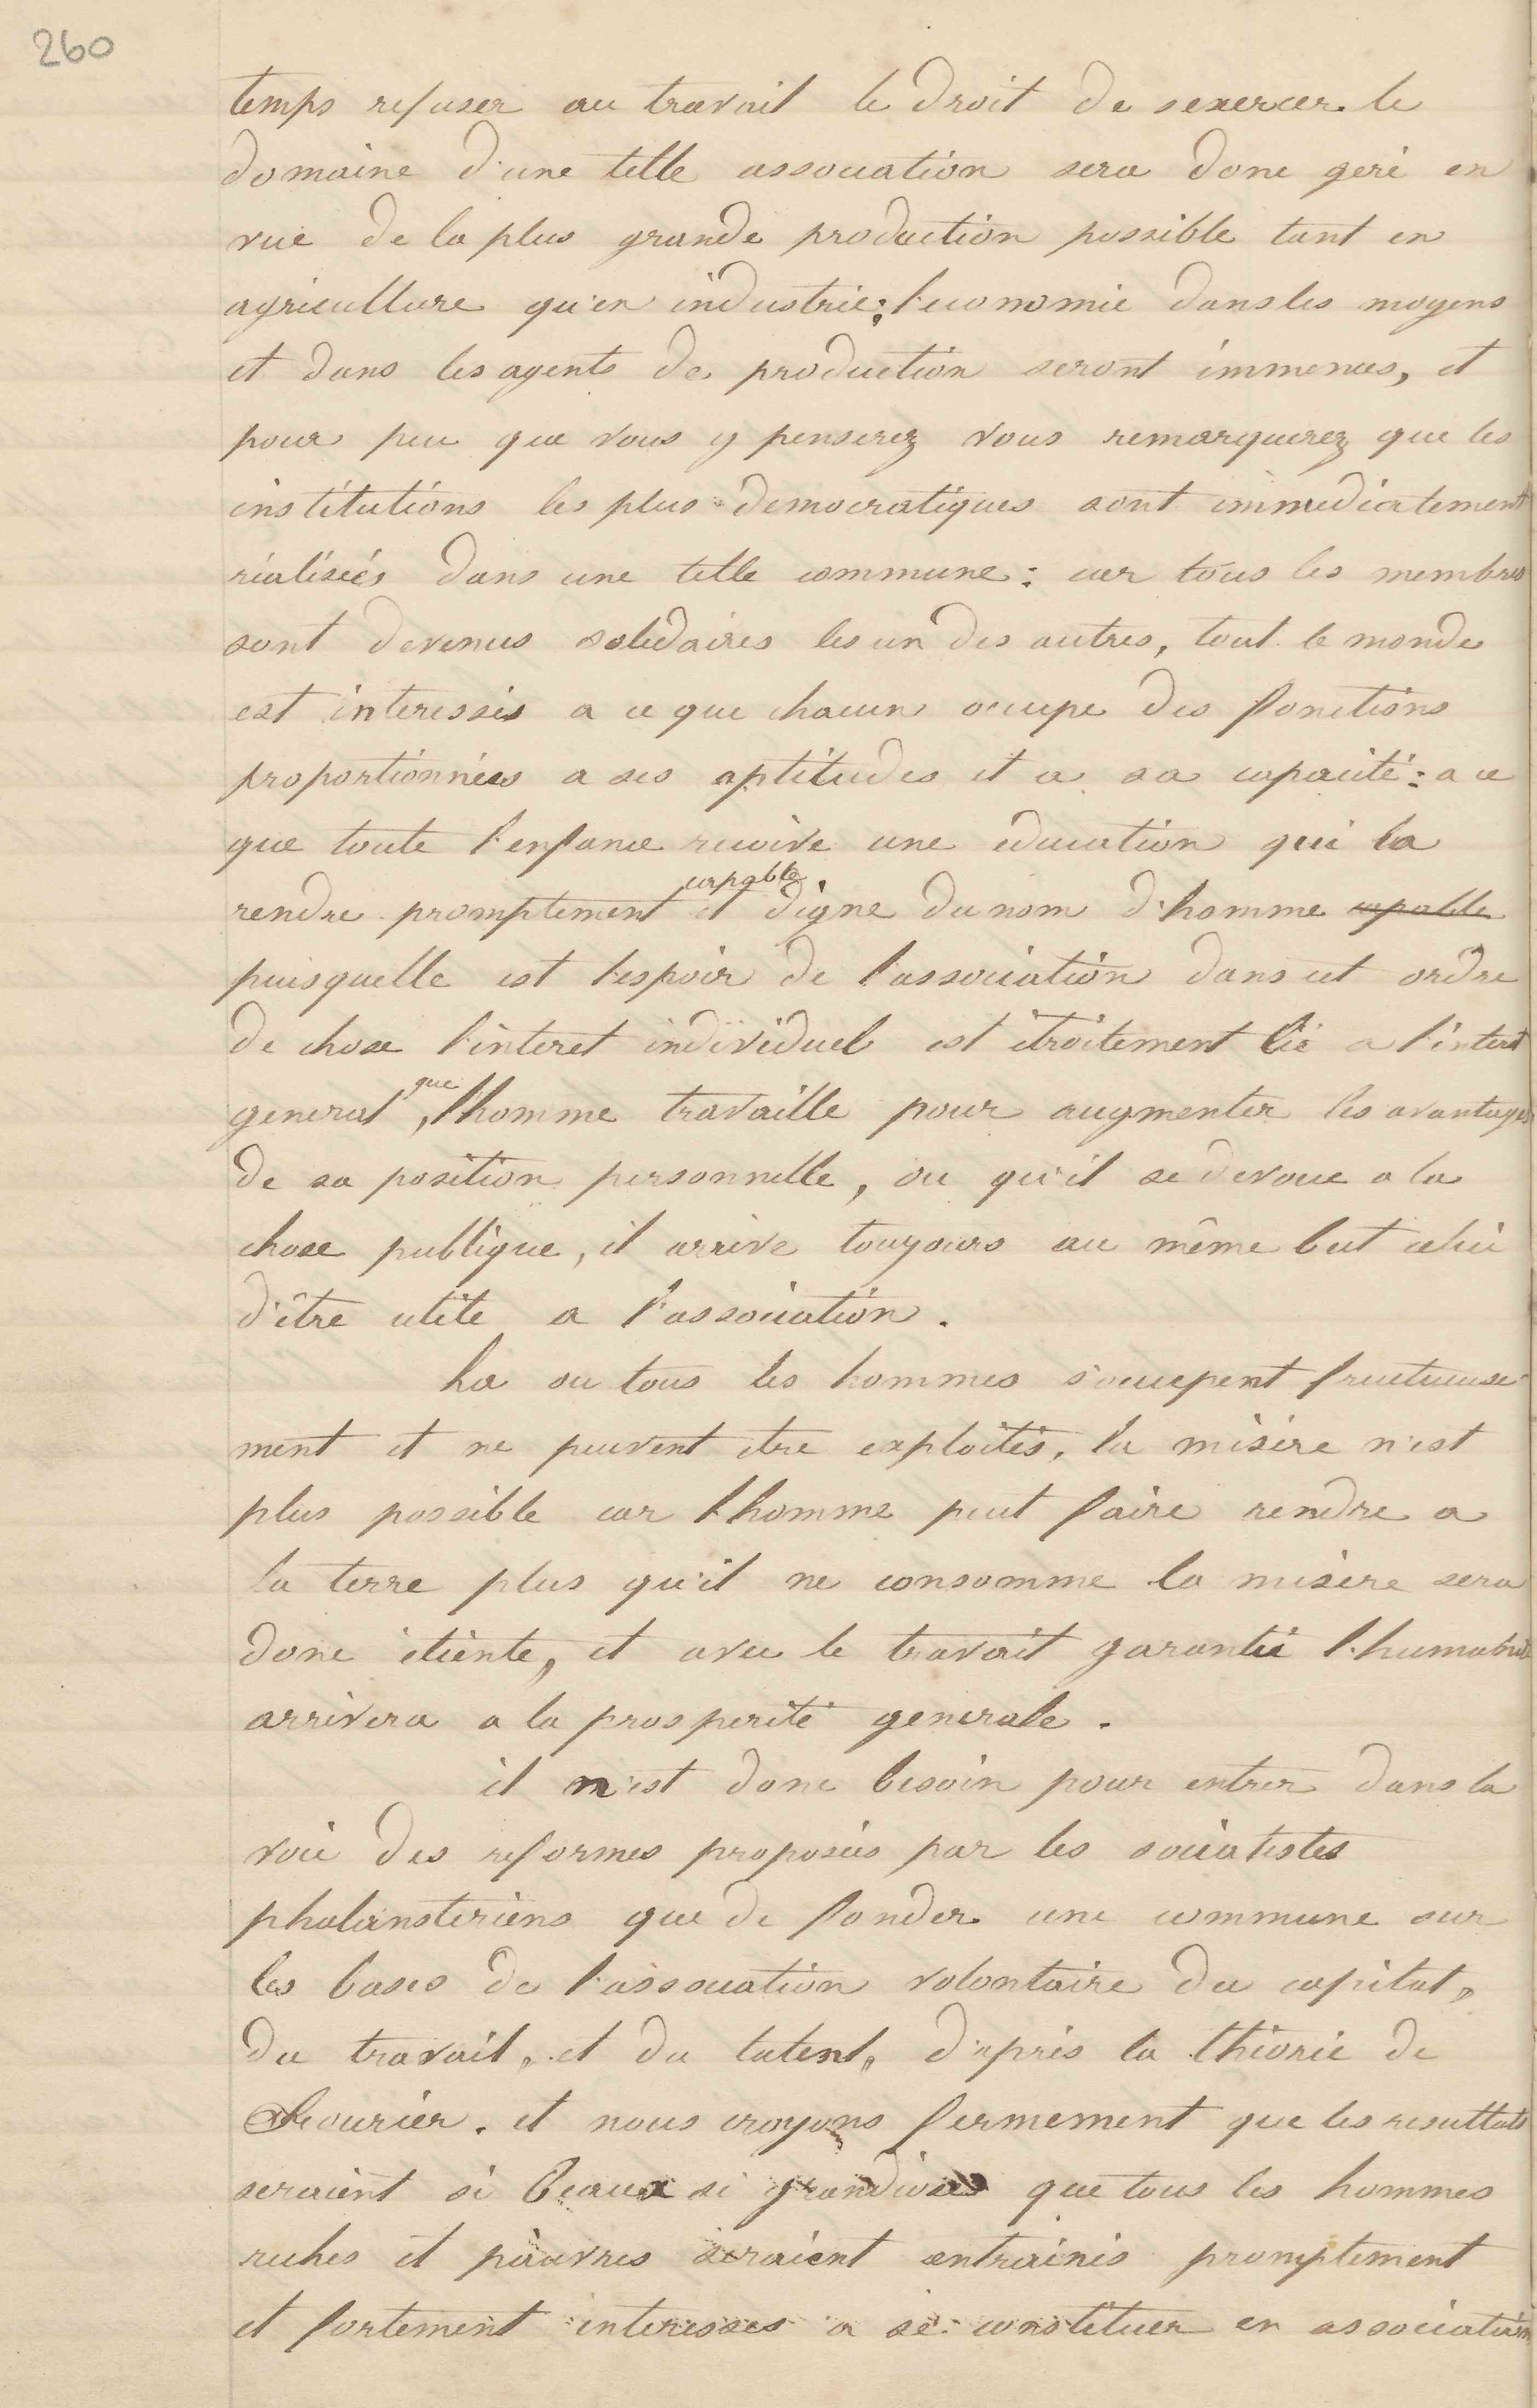 260
temps refuser au travail le droit de sexercer. le
domaine d'une telle association sera donc geré en
vue de la plus grande production possible tant en
agriculture qu'en industrie; l'economie dans les moyens
et dans les agents de production seront immenses, et
pour peu que vous y penserez vous remarquerez que les
institutions les plus democratiques sont immediatement
réalisées dans une telle commune: car tous les membres
sont devenus solidaires les un des autres, tout le monde
est interessés a ce que chacun occupe des fonctions
proportionnées a ses aptitudes et a sa capacité: a ce
que toute l'enfance recoive une education qui la
capable
rendre promptement et digne du nom d'homme capable
puisquelle est l'espoir de l'association dans cet ordre
de chose l'interet individuel est étroitement lié a l'interet
que
general, l'homme travaille pour augmenter les avantages
de sa position personnelle, ou qu'il se devoue a la
chose publique, il arrive toujours au même but celui
d'être utile a l'association.
La ou tous les hommes s'occupent fructueuse-
ment et ne peuvent etre exploités, la misère n'est
plus possible car l'homme peut faire rendre a
la terre plus qu'il ne consomme la misère sera
donc éteinte, et avec le travail garantie l'humanité
arrivera a la prosperité generale.
il n'est donc besoin pour entrer dans la
voie des reformes proposées par les socialistes
phalansteriens que de fonder une commune sur
les bases de l'association volontaire du capital,
du travail, et du talent, d'après la théorie de
Fourier. et nous croyons fermement que les resultats
seraient si beaux si grandioses que tous les hommes
riches et pauvres seraient entrainés promptement
et fortement interesses a se constituer en association